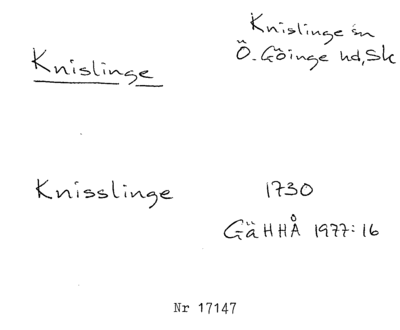 Knislinge sn
Knislinge
Ö. Göinge hd, Sk
Knisslinge 1730
GäHHÅ 1977:16
Nr 17147